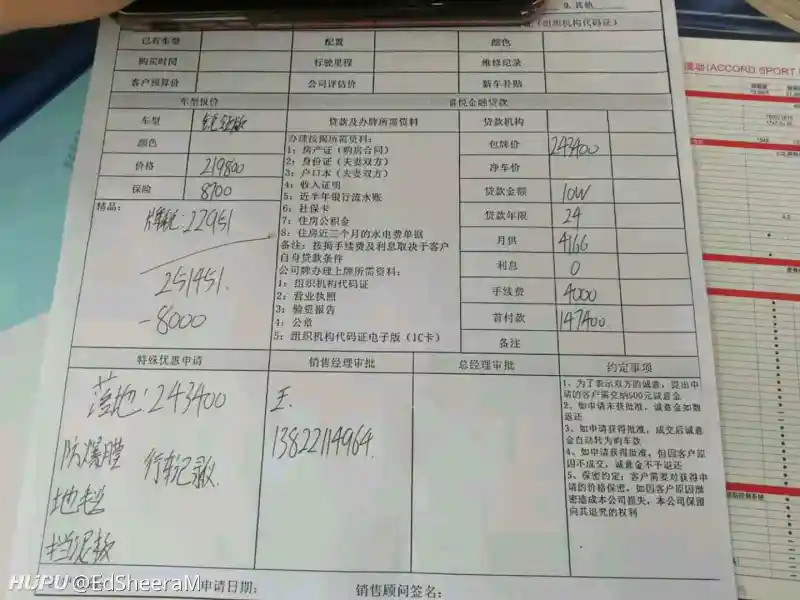 9. 其他
(组织机构代码证)
已有车型 配置 颜色
购买时间 行驶里程 维修纪录
客户预算价 公司评估价 新车补贴
车型报价 喜悦金融贷款
车型 锐致版 贷款及办牌所需资料 贷款机构
颜色 包牌价 243400
价格 219800 净车价
保险 8700 贷款金额 10W
精品: 贷款年限 24
牌税:22951 月供 4166
251451. 利息 0
-8000 手续费 4000
首付款 147400.
备注
办理按揭所需资料:
1: 房产证(购房合同)
2: 身份证(夫妻双方)
3: 户口本(夫妻双方)
4: 收入证明
5: 近半年银行流水账
6: 社保卡
7: 住房公积金
8: 住房近三个月的水电费单据
备注: 按揭手续费及利息取决于客户
自身贷款条件
公司牌办理上牌所需资料:
1: 组织机构代码证
2: 营业执照
3: 验资报告
4: 公章
5: 组织机构代码证电子版(IC卡)
特殊优惠申请 销售经理审批 总经理审批 约定事项
落地:243400
防爆膜 行车记录仪.
地毯
挡泥板
王.
13822114964.
1、为了表示双方的诚意,提出申
请的客户需交纳500元诚意金
2、如申请未获批准,诚意金如数
返还
3、如申请获得批准,成交后诚意
金自动转为购车款
4、如申请获得批准,但因客户原
因不成交,诚意金不予返还
5、保密约定:客户需要对获得申
请的价格保密,如因客户原因泄
密造成本公司损失,本公司保留
向其追究的权利
申请日期: 销售顾问签名:
(ACCORD SPORT
HUPU @EdSheeraM